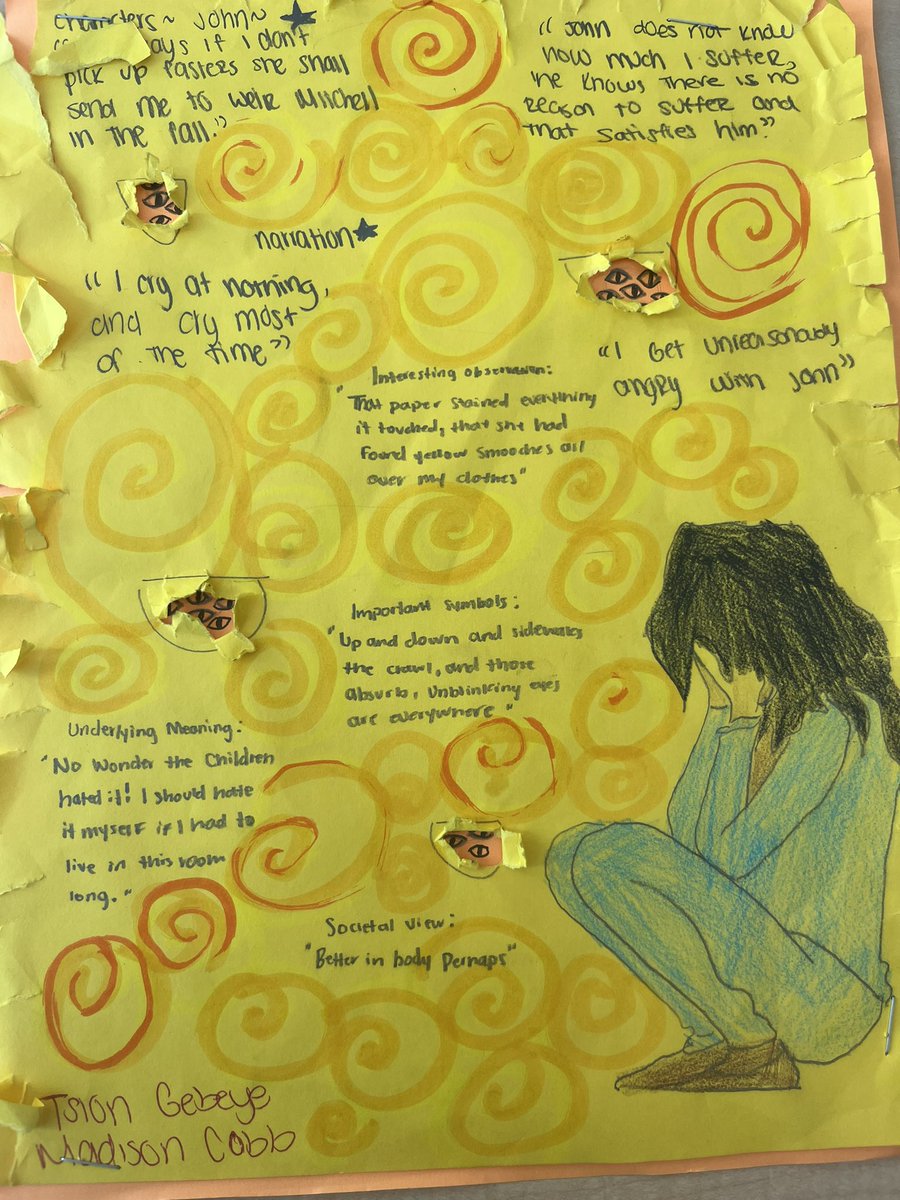 Characters~ John~
ays if I don't
pick up fasters she shall
send me to weir Mitchell
in the fall."
"John does not know
how much I suffer,
He knows there is no
reason to suffer and
that satisfies him."
narration
"I cry at nothing,
and cry most
of the time"
"I Get unreasonably
angry with John"
Interesting observation:
"That paper stained everything
it touched, that she had
found yellow smooches all
over my clothes"
Important symbols:
"Up and down and sideways
the crawl, and those
absurb, unblinking eyes
are everywhere"
Underlying Meaning:
"No wonder the children
hated it! I should hate
it myself if I had to
live in this room
long."
Societal view:
"Better in body perhaps"
Tsion Gebeye
Madison Cobb